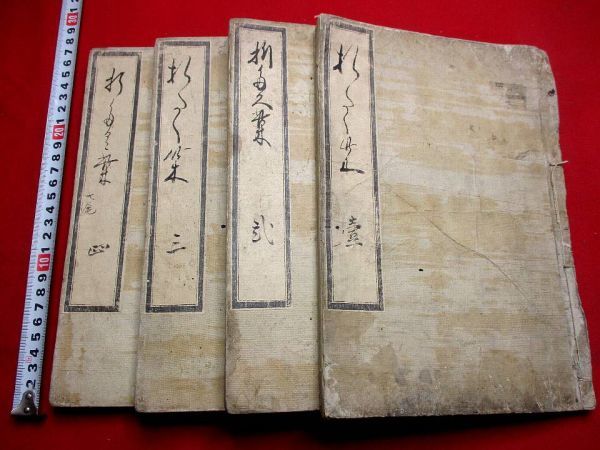 折たく柴
壹
折多久柴
弐
折たく柴
三
折多く柴
四
1 2 3 4 5 6 7 8 9 10 1 2 3 4 5 6 7 8 9 20 1 2 3 4 5 6 7 8 9